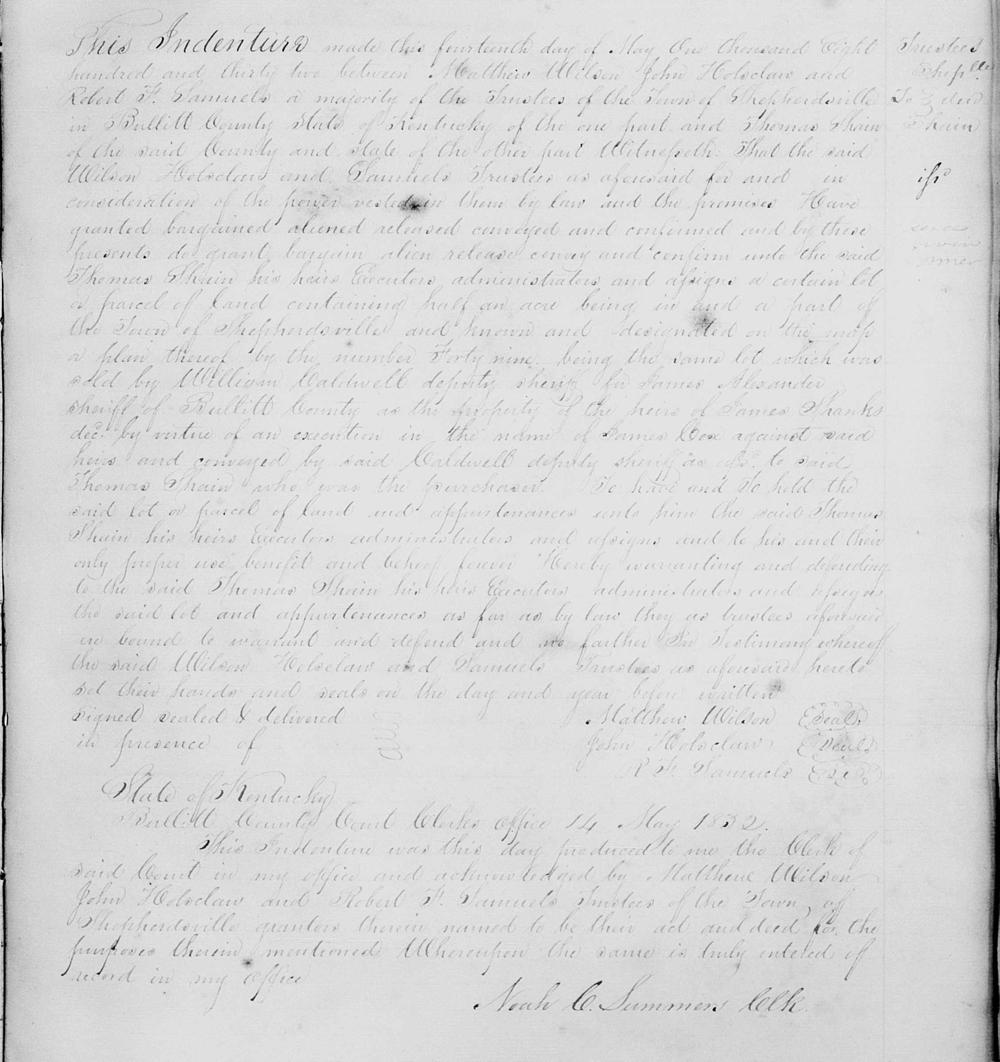 This Indenture made this fourteenth day of May One thousand Eight
hundred and thirty two between Matthew Wilson John Holsclaw and
Robert F. Samuels a majority of the Trustees of the Town of Shepherdsville
in Bullitt County State of Kentucky of the one part and Thomas Shain
of the said County and state of the other part Witnesseth. That the said
Wilson Holsclaw and Samuels Trustees as aforesaid for and in
consideration of the power vested in them by law and the premises Have
granted bargained aliened released conveyed and confirmed and by these
presents do grant bargain alien release convey and confirm unto the said
Thomas Shain his heirs Executors administrators and assigns a certain lot
or parcel of land containing half an acre being in and a part of
the Town of Shepherdsville and known and designated on the map
or plain thereof by the number Forty nine. being the same lot which was
sold by William Caldwell deputy sheriff for James Alexander
sheriff of Bullitt County as the property of the heirs of James Shanks
decd. by virtue of an execution in the name of James Cox against said
heirs and conveyed by said Caldwell deputy sheriff as afsd. to said
Thomas Shain who was the purchaser. To have and To hold the
said lot or parcel of land and appurtenances unto him the said Thomas
Shain his heirs Executors administrators and assigns and to his and their
only proper use benefit and behoof forever Hereby warranting and defending
to the said Thomas Shain his heirs Executors administrators and assigns
the said lot and appurtenances as far as by law they as trustees aforesaid
are bound to warrant and defend and no farther In Testimony whereof
the said Wilson Holsclaw and Samuels Trustees as aforesaid hereto
set their hands and seals on the day and year before written
signed sealed & delivered Matthew Wilson (Seal)
in presence of John Holsclaw (Seal)
R F. Samuels (Seal)
State of Kentucky
Bullitt County Court Clerks office 14 May 1832.
This Indenture was this day produced to me the Clerk of
said Court in my office and acknowledged by Matthew Wilson
John Holsclaw and Robert F. Samuels Trustees of the Town of
Shepherdsville grantors therein named to be their act and deed for the
purposes therein mentioned Whereupon the same is truly entered of
record in my office
Noah C. Summers Clk.
Trustees
Shepvlle
To } deed
Shain